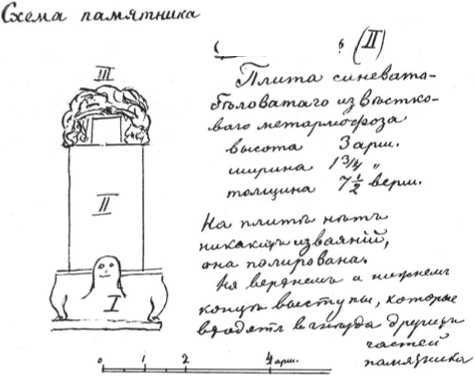 Схема памятника
III
II
I
(II)
Плита синевато-
бѣловатаго известко-
ваго метарморфоза
высота 3 арш.
ширина 1 3/4 "
толщина 7 1/2 верш.
На плитѣ нѣтъ
никакихъ изваянiй,
она полирована.
На верхнемъ и нижнемъ
концѣ выступы, которые
входятъ в гнѣзда другихъ
частей
памятника
0 1 2 4 арш.